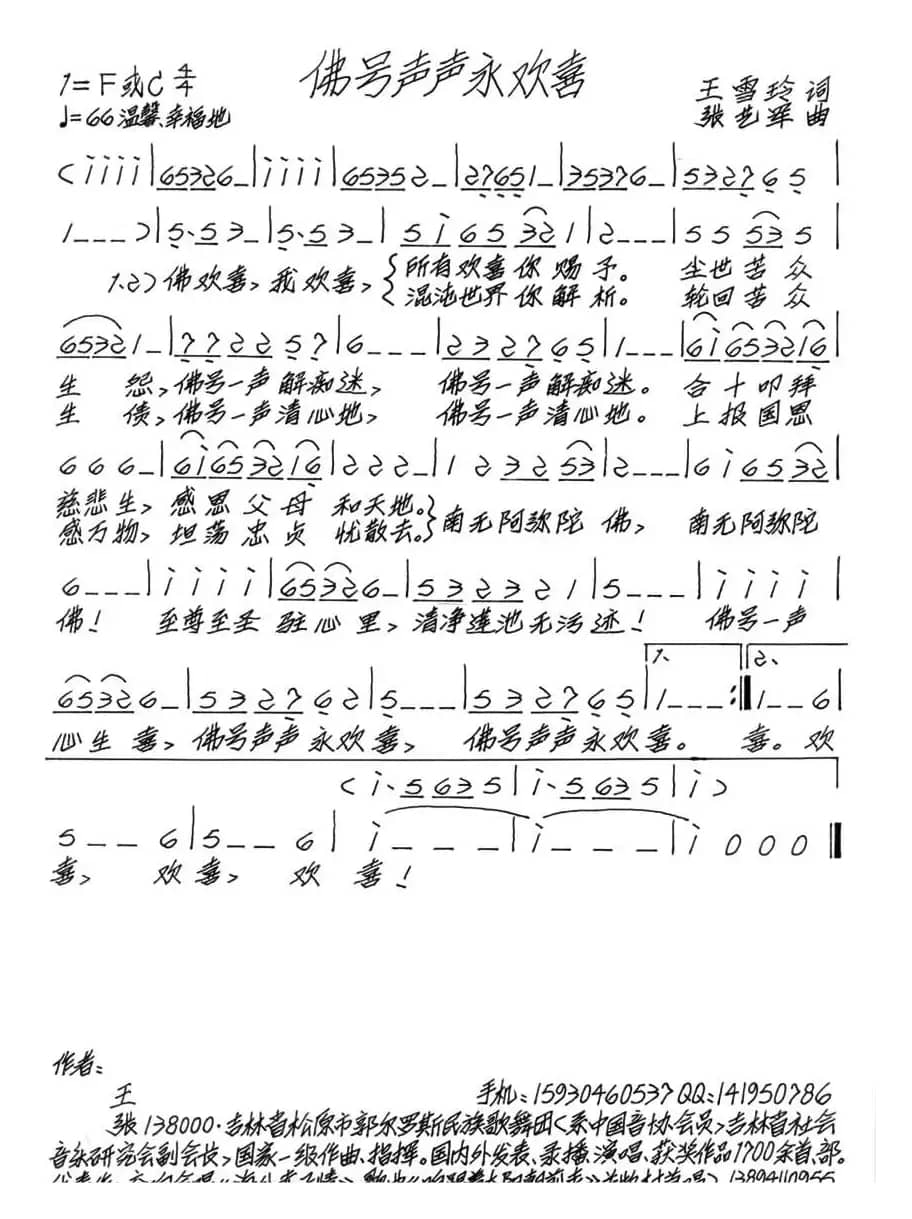 佛号声声永欢喜
1=F或C 4/4
♩=66 温馨、幸福地
王雪玲 词
张艺军 曲
(i i i i | 6532 6 - | i i i i | 6535 2 - | 2765 1 - | 3537 6 - | 5 3 2 7 6 5 |
1 - - - ) | 5· 5 3 - | 5· 5 3 - | 5 i 6 5 32 1 | 2 - - - | 5 5 53 5
1.2) 佛欢喜,我欢喜,{所有欢喜你赐予。 尘世苦众
混沌世界你解析。 轮回苦众
6532 1 - | 7 7 2 2 5 7 | 6 - - - | 2 3 2 7 6 5 | 1 - - - | 6i 65 32 16 |
生 怨,佛号一声解痴迷, 佛号一声解痴迷。 合十叩拜
生 债,佛号一声清心地, 佛号一声清心地。 上报国恩
6 6 6 - | 6i 65 32 16 | 2 2 2 - | 1 2 3 2 53 | 2 - - - | 6 i 6 5 32 |
慈悲生,感恩父母 和天地。} 南无阿弥陀 佛, 南无阿弥陀
感万物,坦荡忠贞 忧散去。
6 - - - | i i i i | 6532 6 - | 5 3 2 3 2 1 | 5 - - - | i i i i |
佛! 至尊至圣 驻心里,清净莲池无污迹! 佛号一声
1、 2、
6532 6 - | 5 3 2 7 6 2 | 5 - - - | 5 3 2 7 6 5 | 1 - - - :‖ 1 - - 6 |
心生喜,佛号声声永欢喜, 佛号声声永欢喜。 喜。欢
(i· 5 63 5 | i· 5 63 5 | i )
5 - - 6 | 5 - - 6 | i - - - | i - - - | i 0 0 0 ‖
喜, 欢喜, 欢 喜!
作者:
王 手机:15930460537 QQ:141950786
张 138000·吉林省松原市郭尔罗斯民族歌舞团<系中国音协会员>吉林省社会
音乐研究会副会长>国家一级作曲、指挥。国内外发表、录播、演唱、获奖作品1700余首、部。